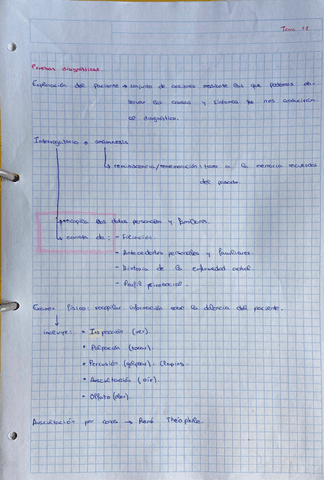 Tema 12
Pruebas diagnósticas
Exploración del paciente → conjunto de acciones mediante las que podemos ob-
servar las causas y síntomas que nos conducirán
al diagnóstico.
Interrogatorio o anamnesis
reminiscencia/rememoración: traer a la memoria recuerdos
del pasado.
recopila los datos personales y familiares.
consta de: - Filiación
- Antecedentes personales y familiares.
- Historia de la enfermedad actual.
- Perfil psicosocial.
Examen físico: recopilar información sobre la dolencia del paciente.
incluye: • Inspección (ver).
• Palpación (tocar).
• Percusión (golpear).
• Auscultación (oír).
• Olfato (oler).
Auscultación por → René Théophile